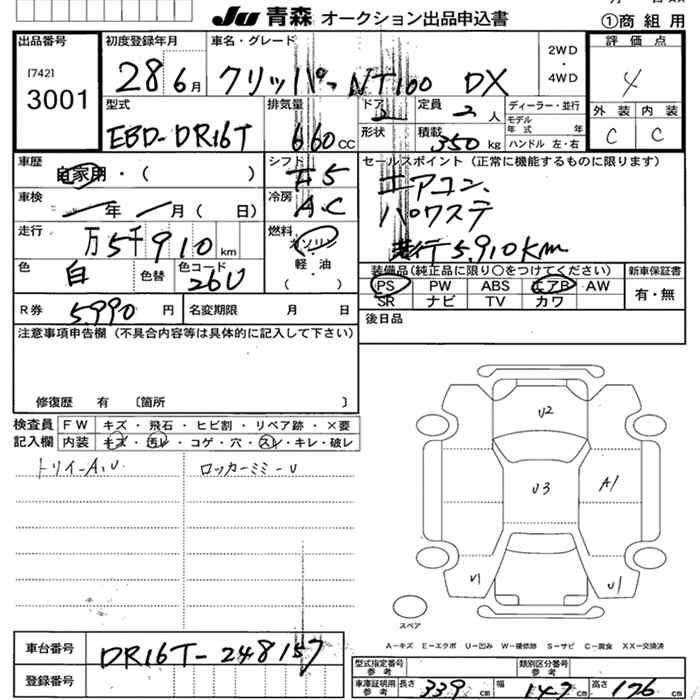 Ju 青森 オークション出品申込書
①商組用
出品番号
[742]
3001
初度登録年月
28 6月
車名・グレード
クリッパー NT100 DX
2WD
・
4WD
評価点
4
型式
EBD-DR16T
排気量
660cc
ドア
2
形状
定員
2人
積載
350kg
ディーラー・並行
モデル年式 年式
ハンドル 左・右
外装 内装
C C
車歴
自家用・( )
シフト
F5
セールスポイント(正常に機能するものに限ります)
エアコン、
パワステ
走行5.910Km
車検
年 月( 日)
冷房
A.C
走行
万5千910km
燃料
ガソリン
軽・油
( )
色
白
色替
色コード
26U
装備品(純正品に限り○をつけてください)
新車保証書
PS PW ABS エアB AW
有・無
SR ナビ TV カワ
R券 5,990円
名変期限 月 日
後日品
注意事項申告欄(不具合内容等は具体的に記入して下さい)
修復歴 有 〔箇所 〕
検査員
記入欄
FW キズ・飛石・ヒビ割・リペア跡・×要
内装 キズ・汚レ・コゲ・穴・スレ・キレ・破レ
トリイ-A,U
ロッカーミミ-U
U2
U3
A1
U1
U1
スペア
A-キズ E-エクボ U-凹み W-補修跡 S-サビ C-腐食 XX-交換済
車台番号
DR16T-248157
登録番号
型式指定番号
参考
類別区分番号
参考
車庫証明用
参考
長さ 339cm 幅 147cm 高さ 176cm